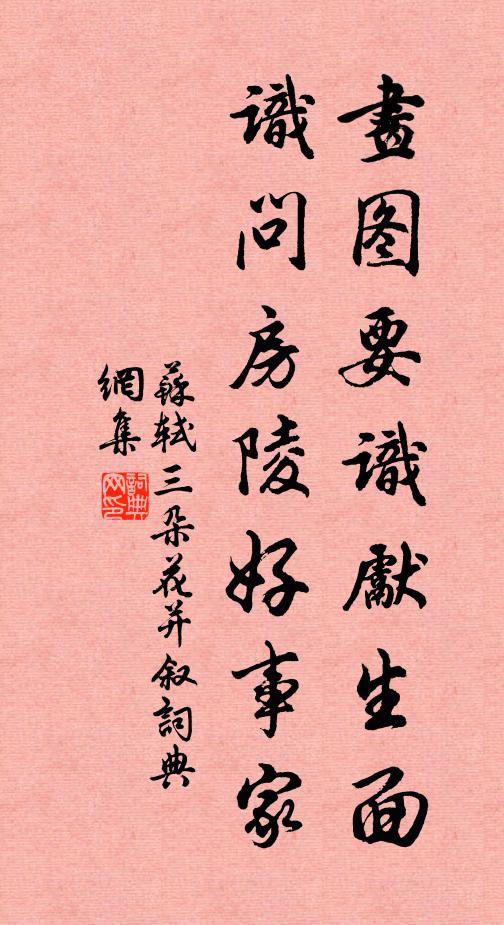 畫图要識獻生面
識問房陵好事家
蘇軾三朵花并叙詞典
網集
詞典
网印